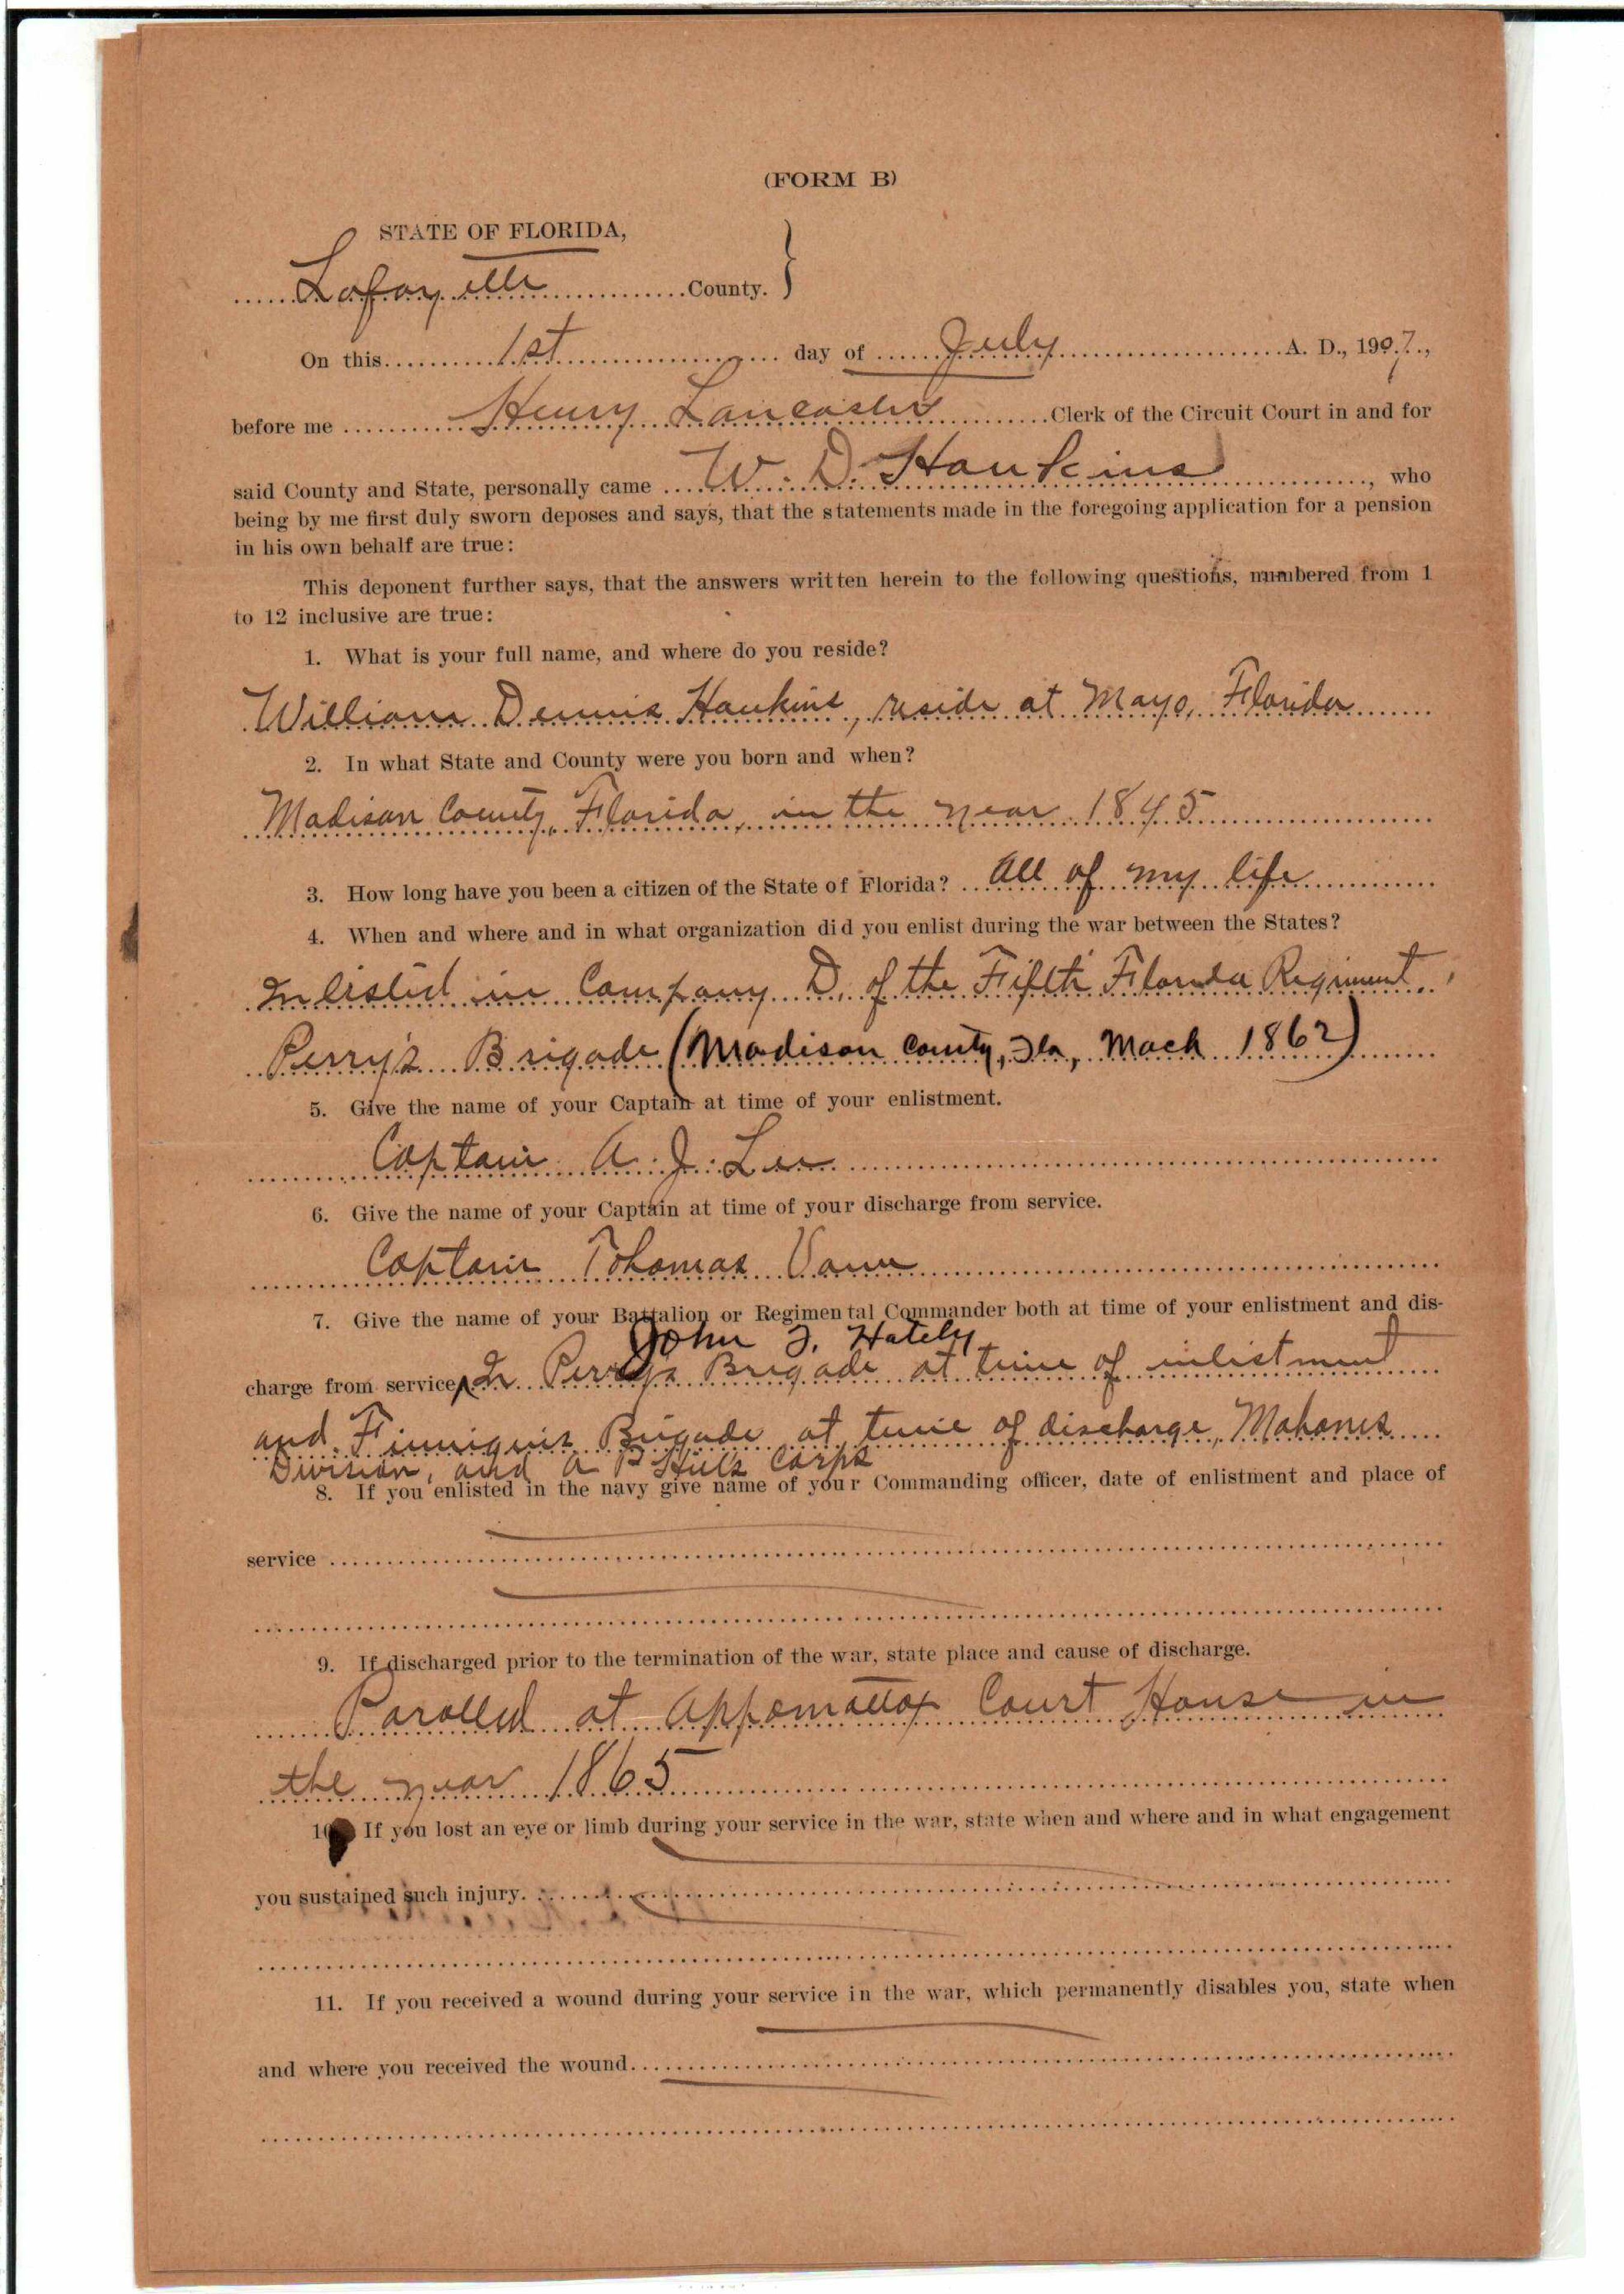 (FORM B)
STATE OF FLORIDA,
Lafayette County.
On this 1st day of July A. D., 1907.,
before me Henry Lancaster Clerk of the Circuit Court in and for
said County and State, personally came W. D. Hankins, who
being by me first duly sworn deposes and says, that the statements made in the foregoing application for a pension
in his own behalf are true:
This deponent further says, that the answers written herein to the following questions, numbered from 1
to 12 inclusive are true:
1. What is your full name, and where do you reside?
William Dennis Hankins, reside at Mayo, Florida
2. In what State and County were you born and when?
Madison County, Florida, in the year 1845
3. How long have you been a citizen of the State of Florida? All of my life
4. When and where and in what organization did you enlist during the war between the States?
Inlisted in Company D. of the Fifth Florida Regiment,
Perry's Brigade (Madison County, Fla, Mach 1862)
5. Give the name of your Captain at time of your enlistment.
Captain A. J. Lee
6. Give the name of your Captain at time of your discharge from service.
Captain Tohomas Vann
7. Give the name of your Battalion or Regimental Commander both at time of your enlistment and dis-
John F. Hately
charge from service In Perry's Brigade at time of inlistment
and Finnigins Brigade at time of discharge, Mahones
Division, and A P Hills Corps
8. If you enlisted in the navy give name of your Commanding officer, date of enlistment and place of
service
9. If discharged prior to the termination of the war, state place and cause of discharge.
Parolled at Appomattox Court House in
the year 1865
10. If you lost an eye or limb during your service in the war, state when and where and in what engagement
you sustained such injury.
11. If you received a wound during your service in the war, which permanently disables you, state when
and where you received the wound